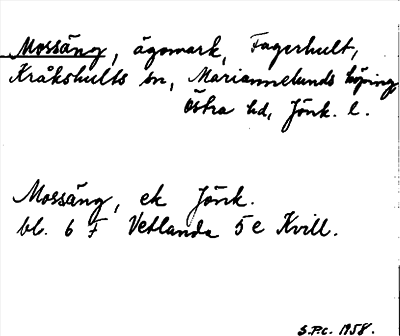 Mossäng, ägomark, Fagerhult,
Kråkshults sn, Mariannelunds köping
Östra hd, Jönk. l.
Mossäng, ek Jönk.
bl. 6 F Vetlanda 5 e Kvill.
S.P.C. 1958.